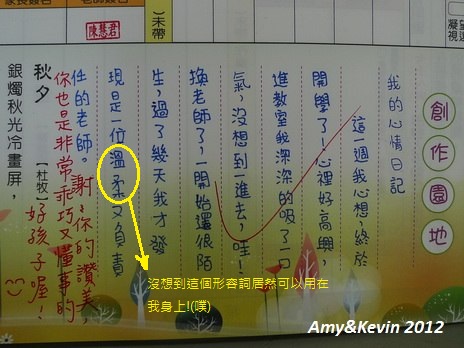 未帶
陳慧君
創作園地
我的心情日記
這一週我心想,終於
開學了!心裡好高興,
進教室我深深的吸了一口
氣,沒想到一進去,哇!
換老師了,一開始還很陌
生,過了幾天我才發
現是一位溫柔又負責
任的老師。謝:你的讚美,
你也是非常乖巧又懂事的
好孩子喔!
秋夕【杜牧】
銀燭秋光冷畫屏,
沒想到這個形容詞居然可以用在
我身上!(噗)
Amy&Kevin 2012